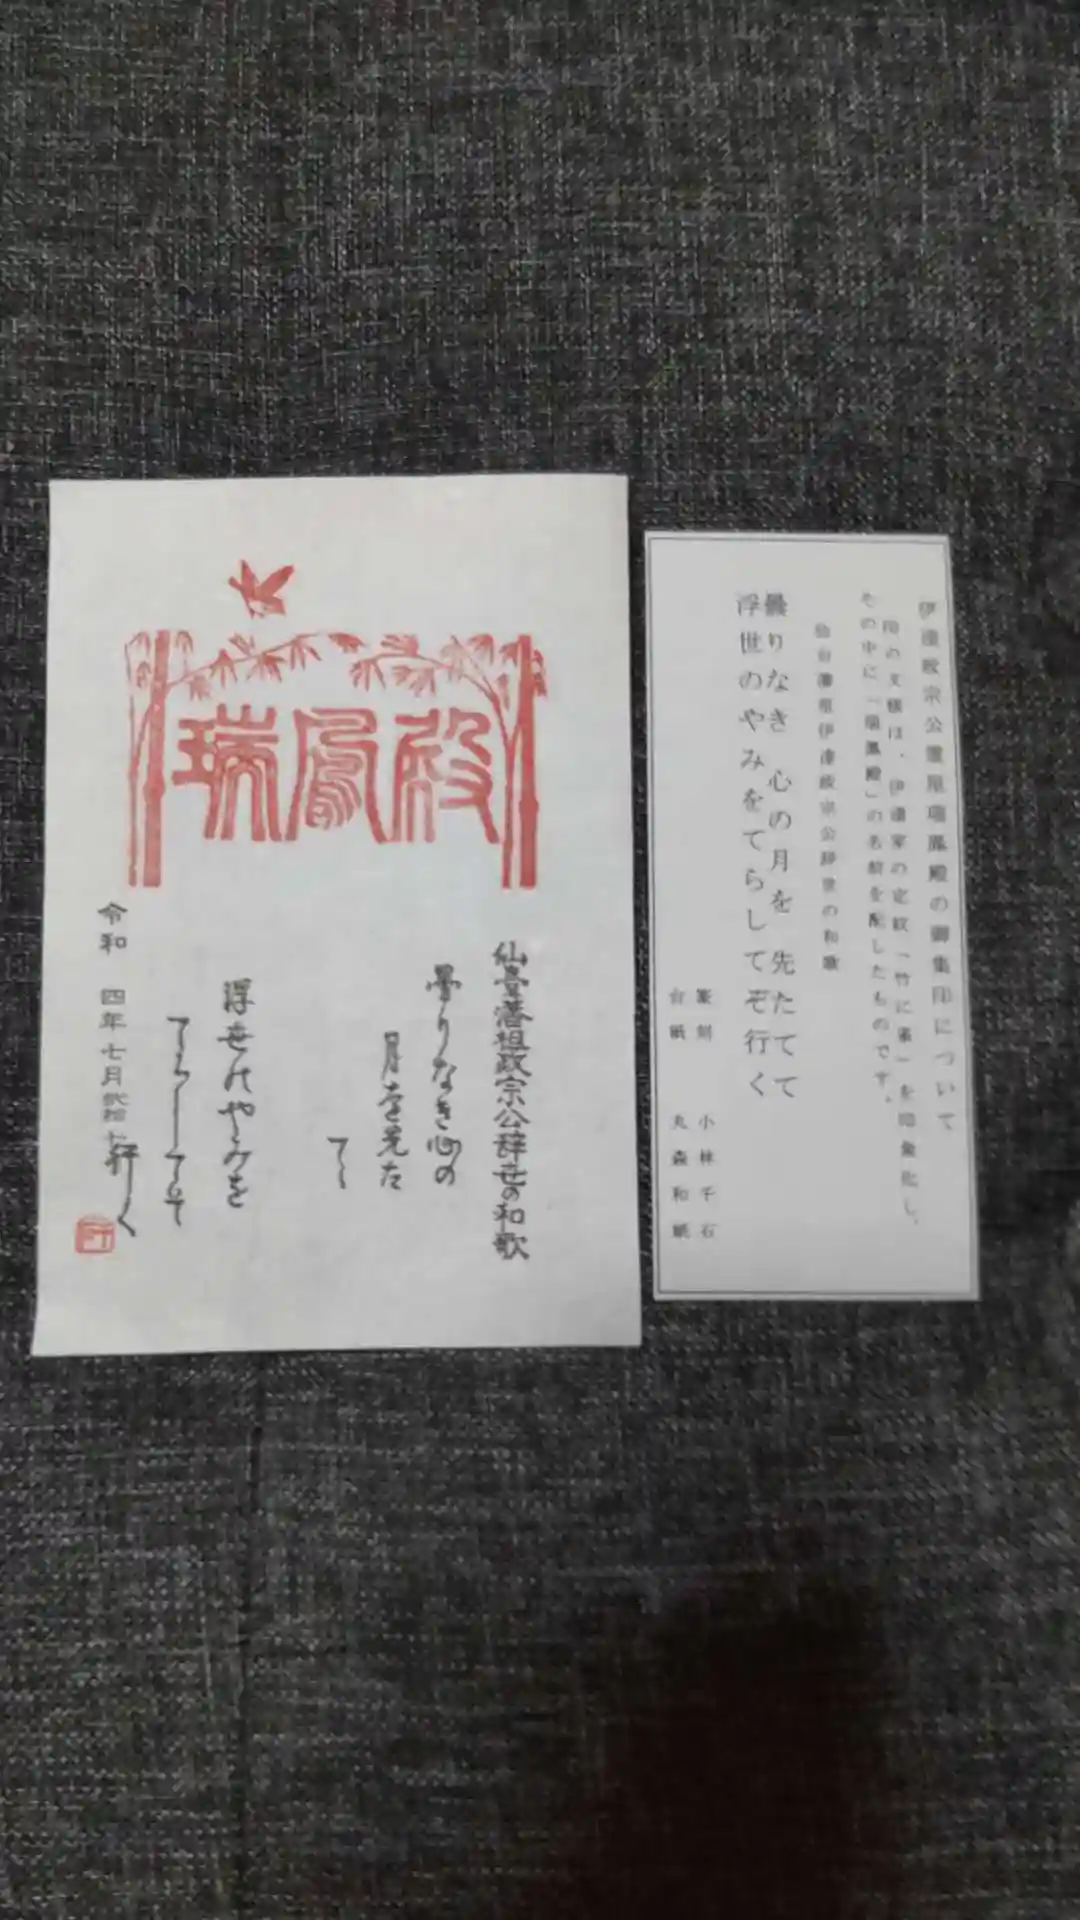 瑞鳳殿
仙臺藩祖政宗公辞世の和歌
曇りなき心の
月を先た
てゝ
浮世のやみを
てらしてそ
行く
令和 四年 七月 弐拾七
伊達政宗公霊屋瑞鳳殿の御集印について
印の文様は、伊達家の定紋「竹に雀」を印象化し、
その中に「瑞鳳殿」の名前を配したものです。
仙台藩祖伊達政宗公辞世の和歌
曇りなき 心の月を 先たてて
浮世のやみをてらしてぞ行く
篆刻 小林千石
台紙 丸森和紙